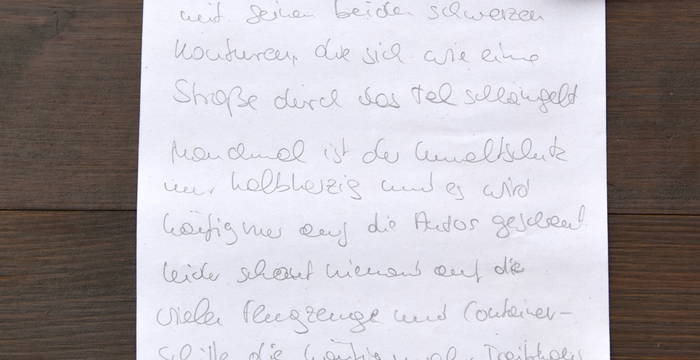 mit seinen beiden schwarzen
Konturen, die sich wie eine
Straße durch das Tal schlängelt
Manchmal ist der Umweltschutz
nur halbherzig und es wird
häufig nur auf die Autos geschaut
leider schaut niemand auf die
vielen Flugzeuge und Container-
schiffe die häufig mehr Treibhaus